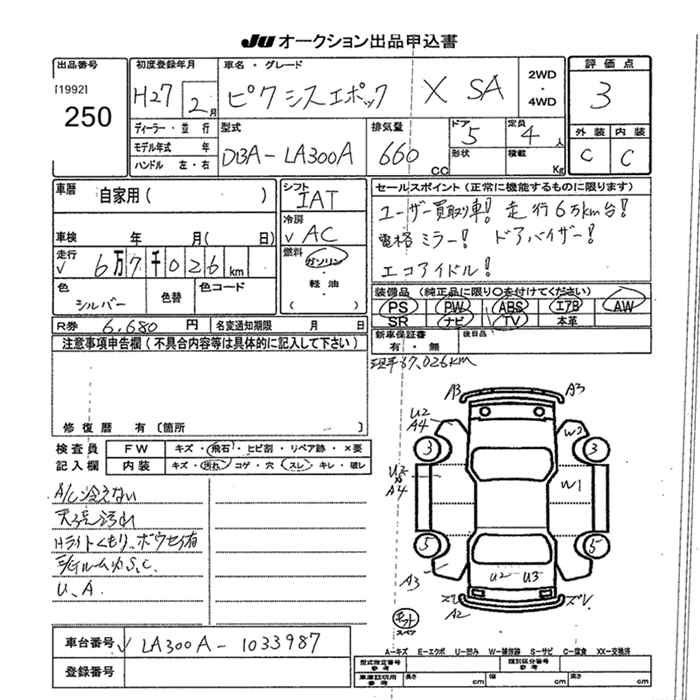 JU オークション出品申込書
出品番号
[1992]
250
初度登録年月
H27 2月
車名・グレード
ピクシスエポック X SA
2WD
・
4WD
評価点
3
外装 内装
C C
ディーラー・並行
モデル年式 年
ハンドル 左・右
型式
DBA-LA300A
排気量
660 cc
ドア
5
形状
定員
4人
積載 Kg
車歴
自家用( )
車検 年 月( 日)
走行
√ 6万7千026km
色
シルバー
色替
色コード
シフト
IAT
冷房
√AC
燃料
ガソリン
・
軽油
( )
セールスポイント(正常に機能するものに限ります)
ユーザー買取り車! 走行6万km台!
電格ミラー! ドアバイザー!
エコアイドル!
装備品(純正品に限り○を付けてください)
PS PW ABS エアB AW
SR ナビ TV 本革
R券 6,680円 名変通知期限 月 日
注意事項申告欄(不具合内容等は具体的に記入して下さい)
新車保証書
有・無
後日品
現车67,026km
修復歴 有〔箇所 〕
検査員 FW キズ・飛石・ヒビ割・リペア跡・×要
記入欄 内装 キズ・汚れ・コゲ・穴・スレ・キレ・破レ
A/C冷えない
天張汚れ
Hライトくもり、ボウセイ有
U、A.
A3 A3
U2
A4
W2
3 3
U2
A4
W1
5 5
A3
U2 U3
ズレ ズレ
A2
スペア
A-キズ E-エクボ U-凹み W-補修跡 S-サビ C-腐食 XX-交換済
車台番号 √ LA300A-1033987
登録番号
型式指定番号
参考
類別区分番号
参考
車庫証明用
参考
長さ cm 幅 cm 高さ cm